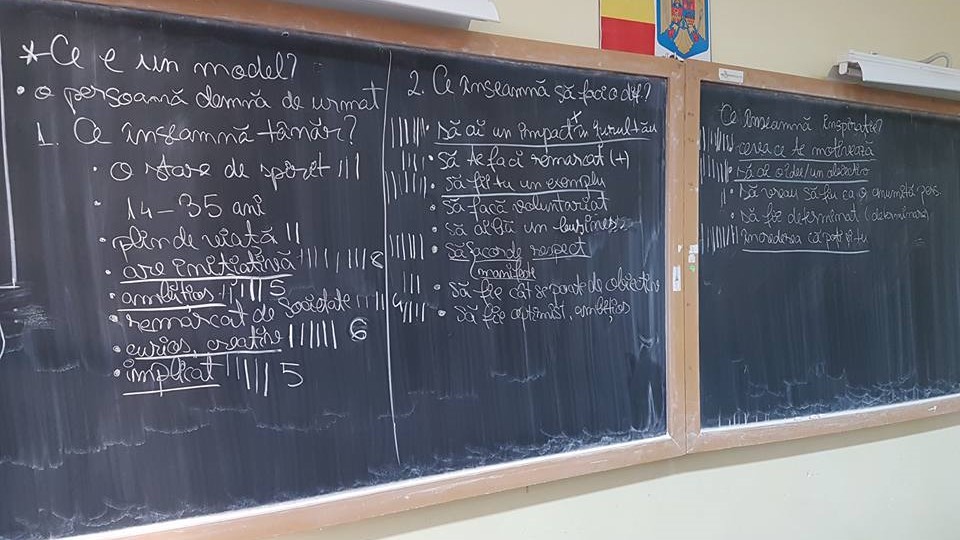 *Ce e un model?
• o persoană demnă de urmat
1. Ce înseamnă tânăr?
• o stare de spirit III
• 14-35 ani
• plin de viață II
• are inițiativă IIIIIIII 8
• ambițios IIIII 5
• remarcat de societate IIII 4
• curios, creativ IIIIII 6
• implicat IIIII 5
2. Ce înseamnă să faci o dif.?
• să ai un impact + în jurul tău
• să te faci remarcat (+)
• să fii tu un exemplu
• să facă voluntariat
• să aibă un business
• să acorde respect
manifeste
• să fie cât se poate de obiectiv
• să fie optimist, ambițios
Ce înseamnă inspirație?
ceea ce te motivează
să ai o idee/un obiectiv
• să vreau să fiu ca o anumită pers.
• să fie determinat (determinare)
încrederea că poți și tu